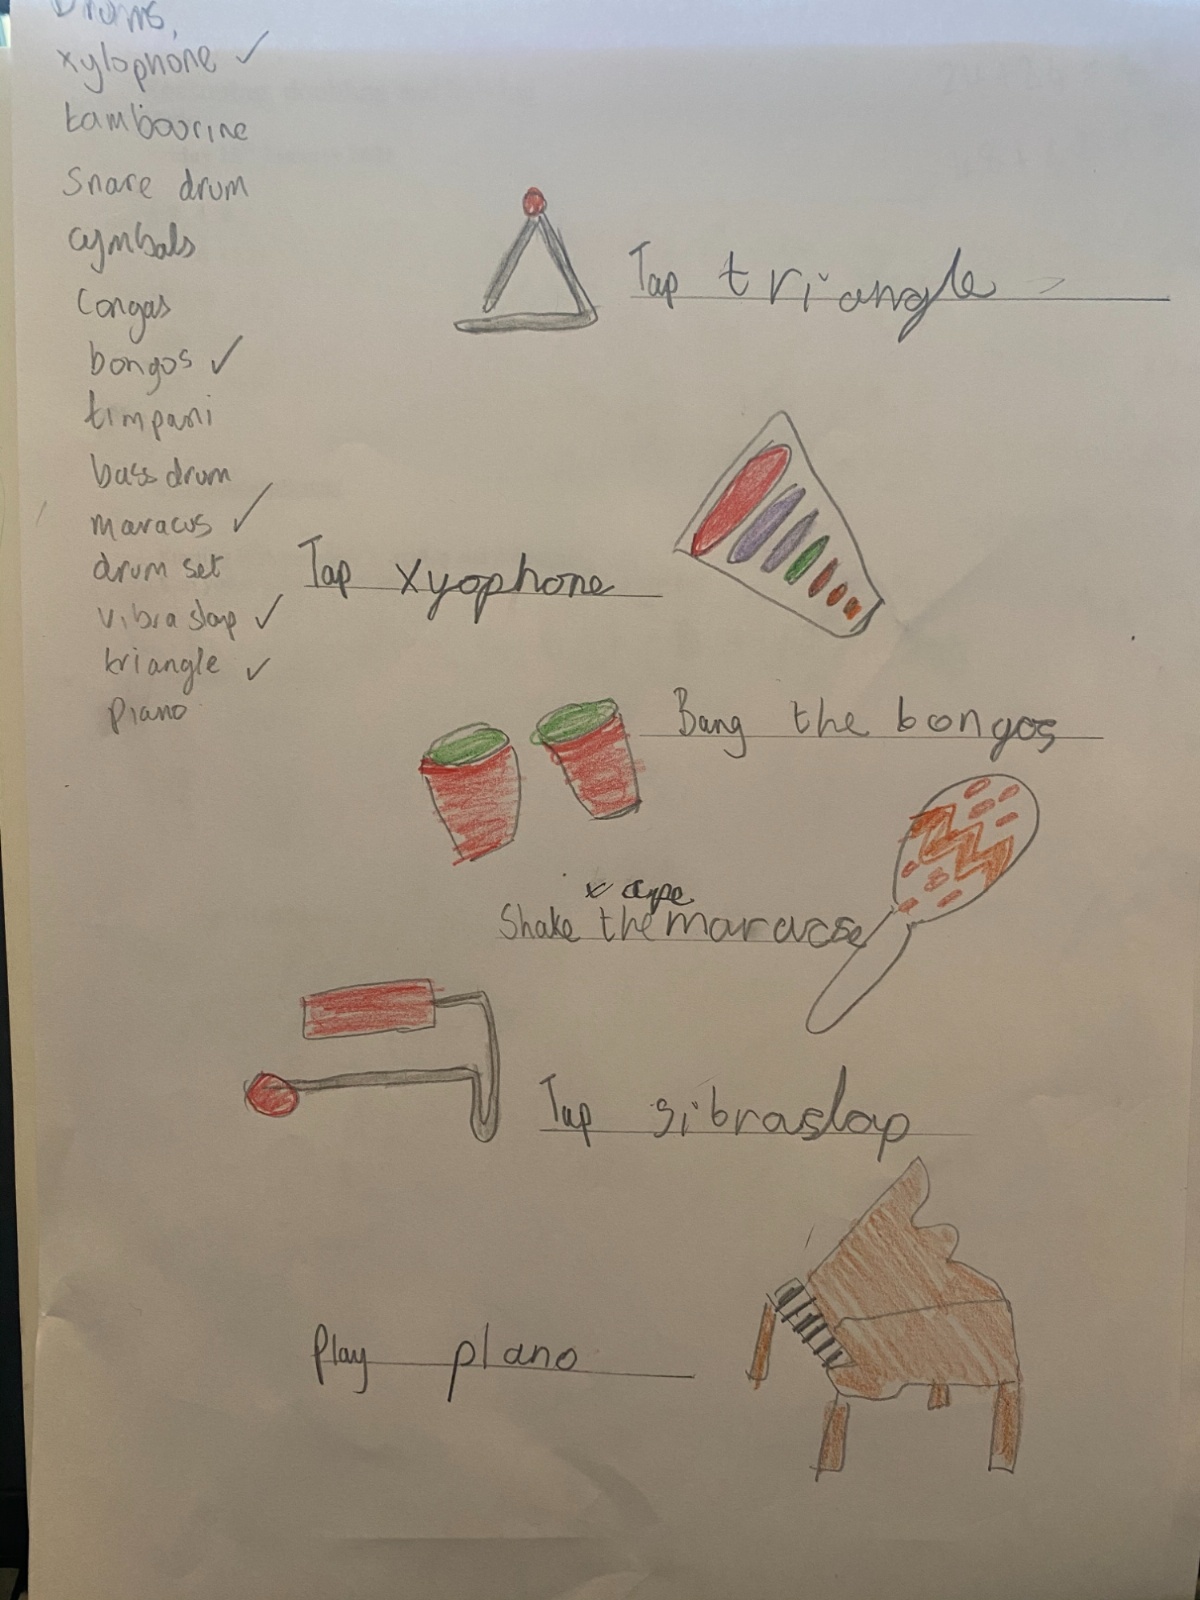 Drums,
xylophone ✓
tambourine
Snare drum
cymbals
Congas
bongos ✓
timpani
bass drum
maracus ✓
drum set
vibra slap ✓
triangle ✓
piano
Tap triangle
Tap xyophone
Bang the bongos
Shake the maracse
Tap sibraslap
Play piano